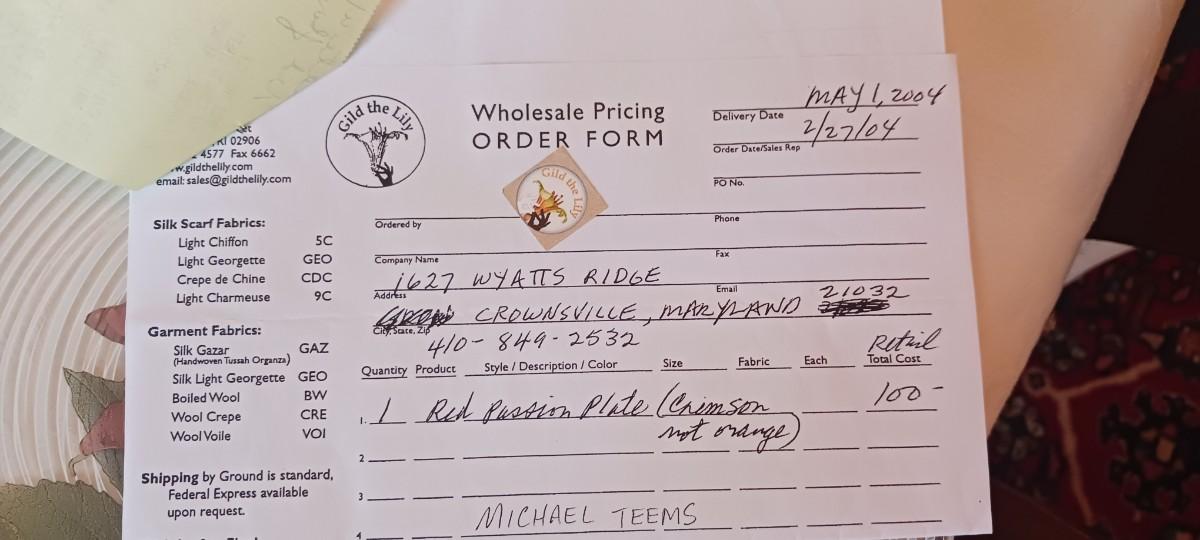 RI 02906
4577 Fax 6662
w.gildthelily.com
email: sales@gildthelily.com
Gild the Lily
Wholesale Pricing
ORDER FORM
Gild the Lily
MAY 1, 2004
Delivery Date
2/27/04
Order Date/Sales Rep
PO No.
Ordered by
Phone
Company Name
Fax
1627 WYATTS RIDGE
Address
Email
CROWNSVILLE, MARYLAND 21032
City, State, Zip
410-849-2532
Silk Scarf Fabrics:
Light Chiffon 5C
Light Georgette GEO
Crepe de Chine CDC
Light Charmeuse 9C
Garment Fabrics:
Silk Gazar GAZ
(Handwoven Tussah Organza)
Silk Light Georgette GEO
Boiled Wool BW
Wool Crepe CRE
Wool Voile VOI
Shipping by Ground is standard,
Federal Express available
upon request.
Retail
Quantity Product Style / Description / Color Size Fabric Each Total Cost
1. 1 Red Passion Plate (Crimson 100-
not orange)
2
3
MICHAEL TEEMS
4